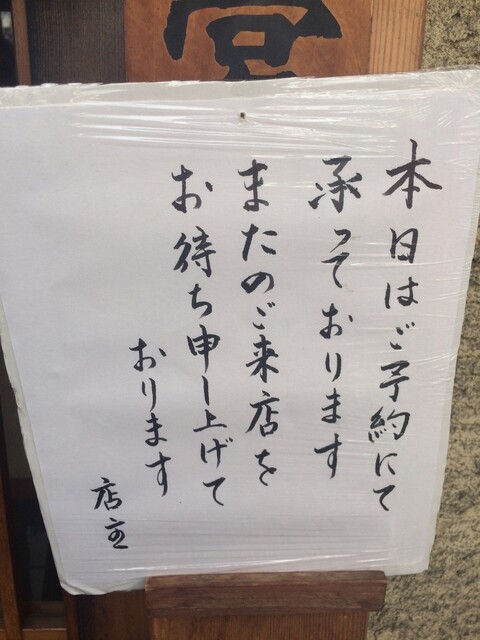 本日はご予約にて
承っております
またのご来店を
お待ち申し上げて
おります
店主